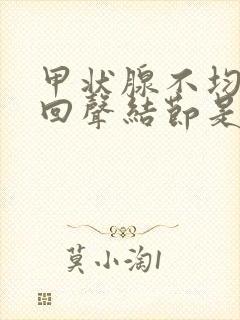 甲状腺不均
回聲結節是
莫小淘1